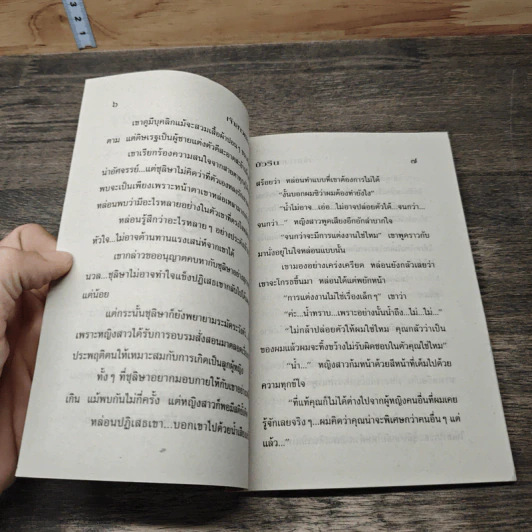 ๖
เขาดูมีบุคลิกแม้จะสวมเสื้อผ้า
ตาม แต่ดิษเรฐเป็นผู้ชายแต่งตัวดี
เขาเรียกร้องความสนใจจาก
น่าอัศจรรย์...แต่ชุลิษาไม่คิดว่าที่ตัวเอง
พบจะเป็นเพียงเพราะหน้าตาเขา
หล่อนพบว่ามีอะไรหลายอย่างในตัวเขาที่
หล่อนรู้สึกว่าอะไรหลายๆ อย่าง
หัวใจ...ไม่อาจต้านทานแรงเสน่ห์จากเขาได้
เขากล่าวขออนุญาตคบหากับชุลิษา
นวล...ชุลิษาไม่อาจทำใจแข็งปฏิเสธเขา
แต่น้อย
แต่กระนั้นชุลิษาก็ยังพยายามระมัดระวัง
เพราะหญิงสาวได้รับการอบรมสั่งสอนมาตลอด
ประพฤติตนให้เหมาะสมกับการเกิดเป็นลูกผู้หญิง
ทั้งๆ ที่ชุลิษาอยากมอบกายให้กับเขา
เกิน แม้พบกันไม่กี่ครั้ง แต่หญิงสาวก็
หล่อนปฏิเสธเขา...บอกเขาไปด้วย
นิวริน
๗
สร้อยว่า หล่อนทำแบบที่เขาต้องการไม่ได้
“งั้นบอกผมซิว่าผมต้องทำยังไง”
“น้ำไม่อาจ...เอ่อ...ไม่อาจปล่อยตัวได้...จนกว่า...
จนกว่า...” หญิงสาวพูดเสียงอึกอักลำบากใจ
“จนกว่าจะมีการแต่งงานใช่ไหม” เขาพูดราวกับ
มานั่งอยู่ในใจหล่อนแบบนั้น
เขามองอย่างเคร่งเครียด หล่อนยังกลัวเลยว่า
เขาจะโกรธขึ้นมา หล่อนได้แต่พยักหน้า
“การแต่งงานไม่ใช่เรื่องเล็กๆ” เขาว่า
“ค่ะ...น้ำทราบ...เพราะอย่างนั้นน้ำถึง...ไม่...ไม่...”
“ไม่กล้าปล่อยตัวให้ผมใช่ไหม คุณกลัวว่าเป็น
ของผมแล้วผมจะทิ้งขว้างไม่รับผิดชอบในตัวคุณใช่ไหม”
“น้ำ...” หญิงสาวก้มหน้าด้วยสีหน้าที่เต็มไปด้วย
ความทุกข์ใจ
“ที่แท้คุณก็ไม่ได้ต่างไปจากผู้หญิงคนอื่นที่ผมเคย
รู้จักเลยจริงๆ...ผมคิดว่าคุณน่าจะพิเศษกว่าคนอื่นๆ แต่
แล้ว...”
3
2
1